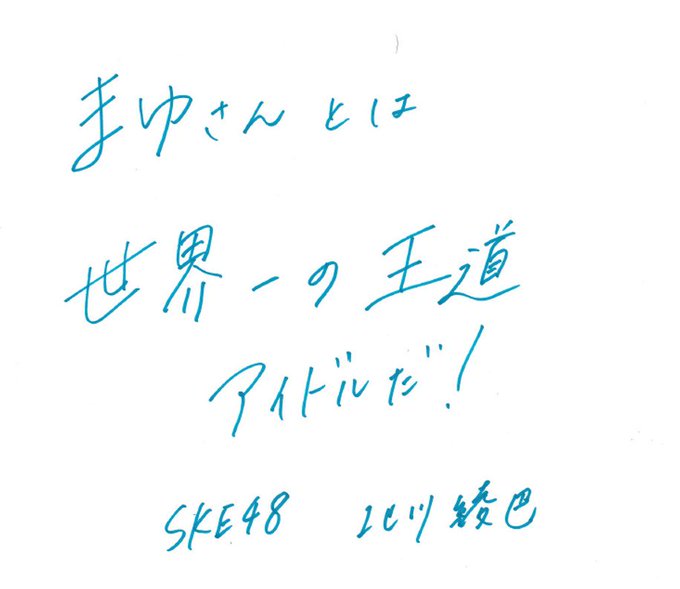 まゆさんとは
世界一の王道
アイドルだ!
SKE48 北川綾巴